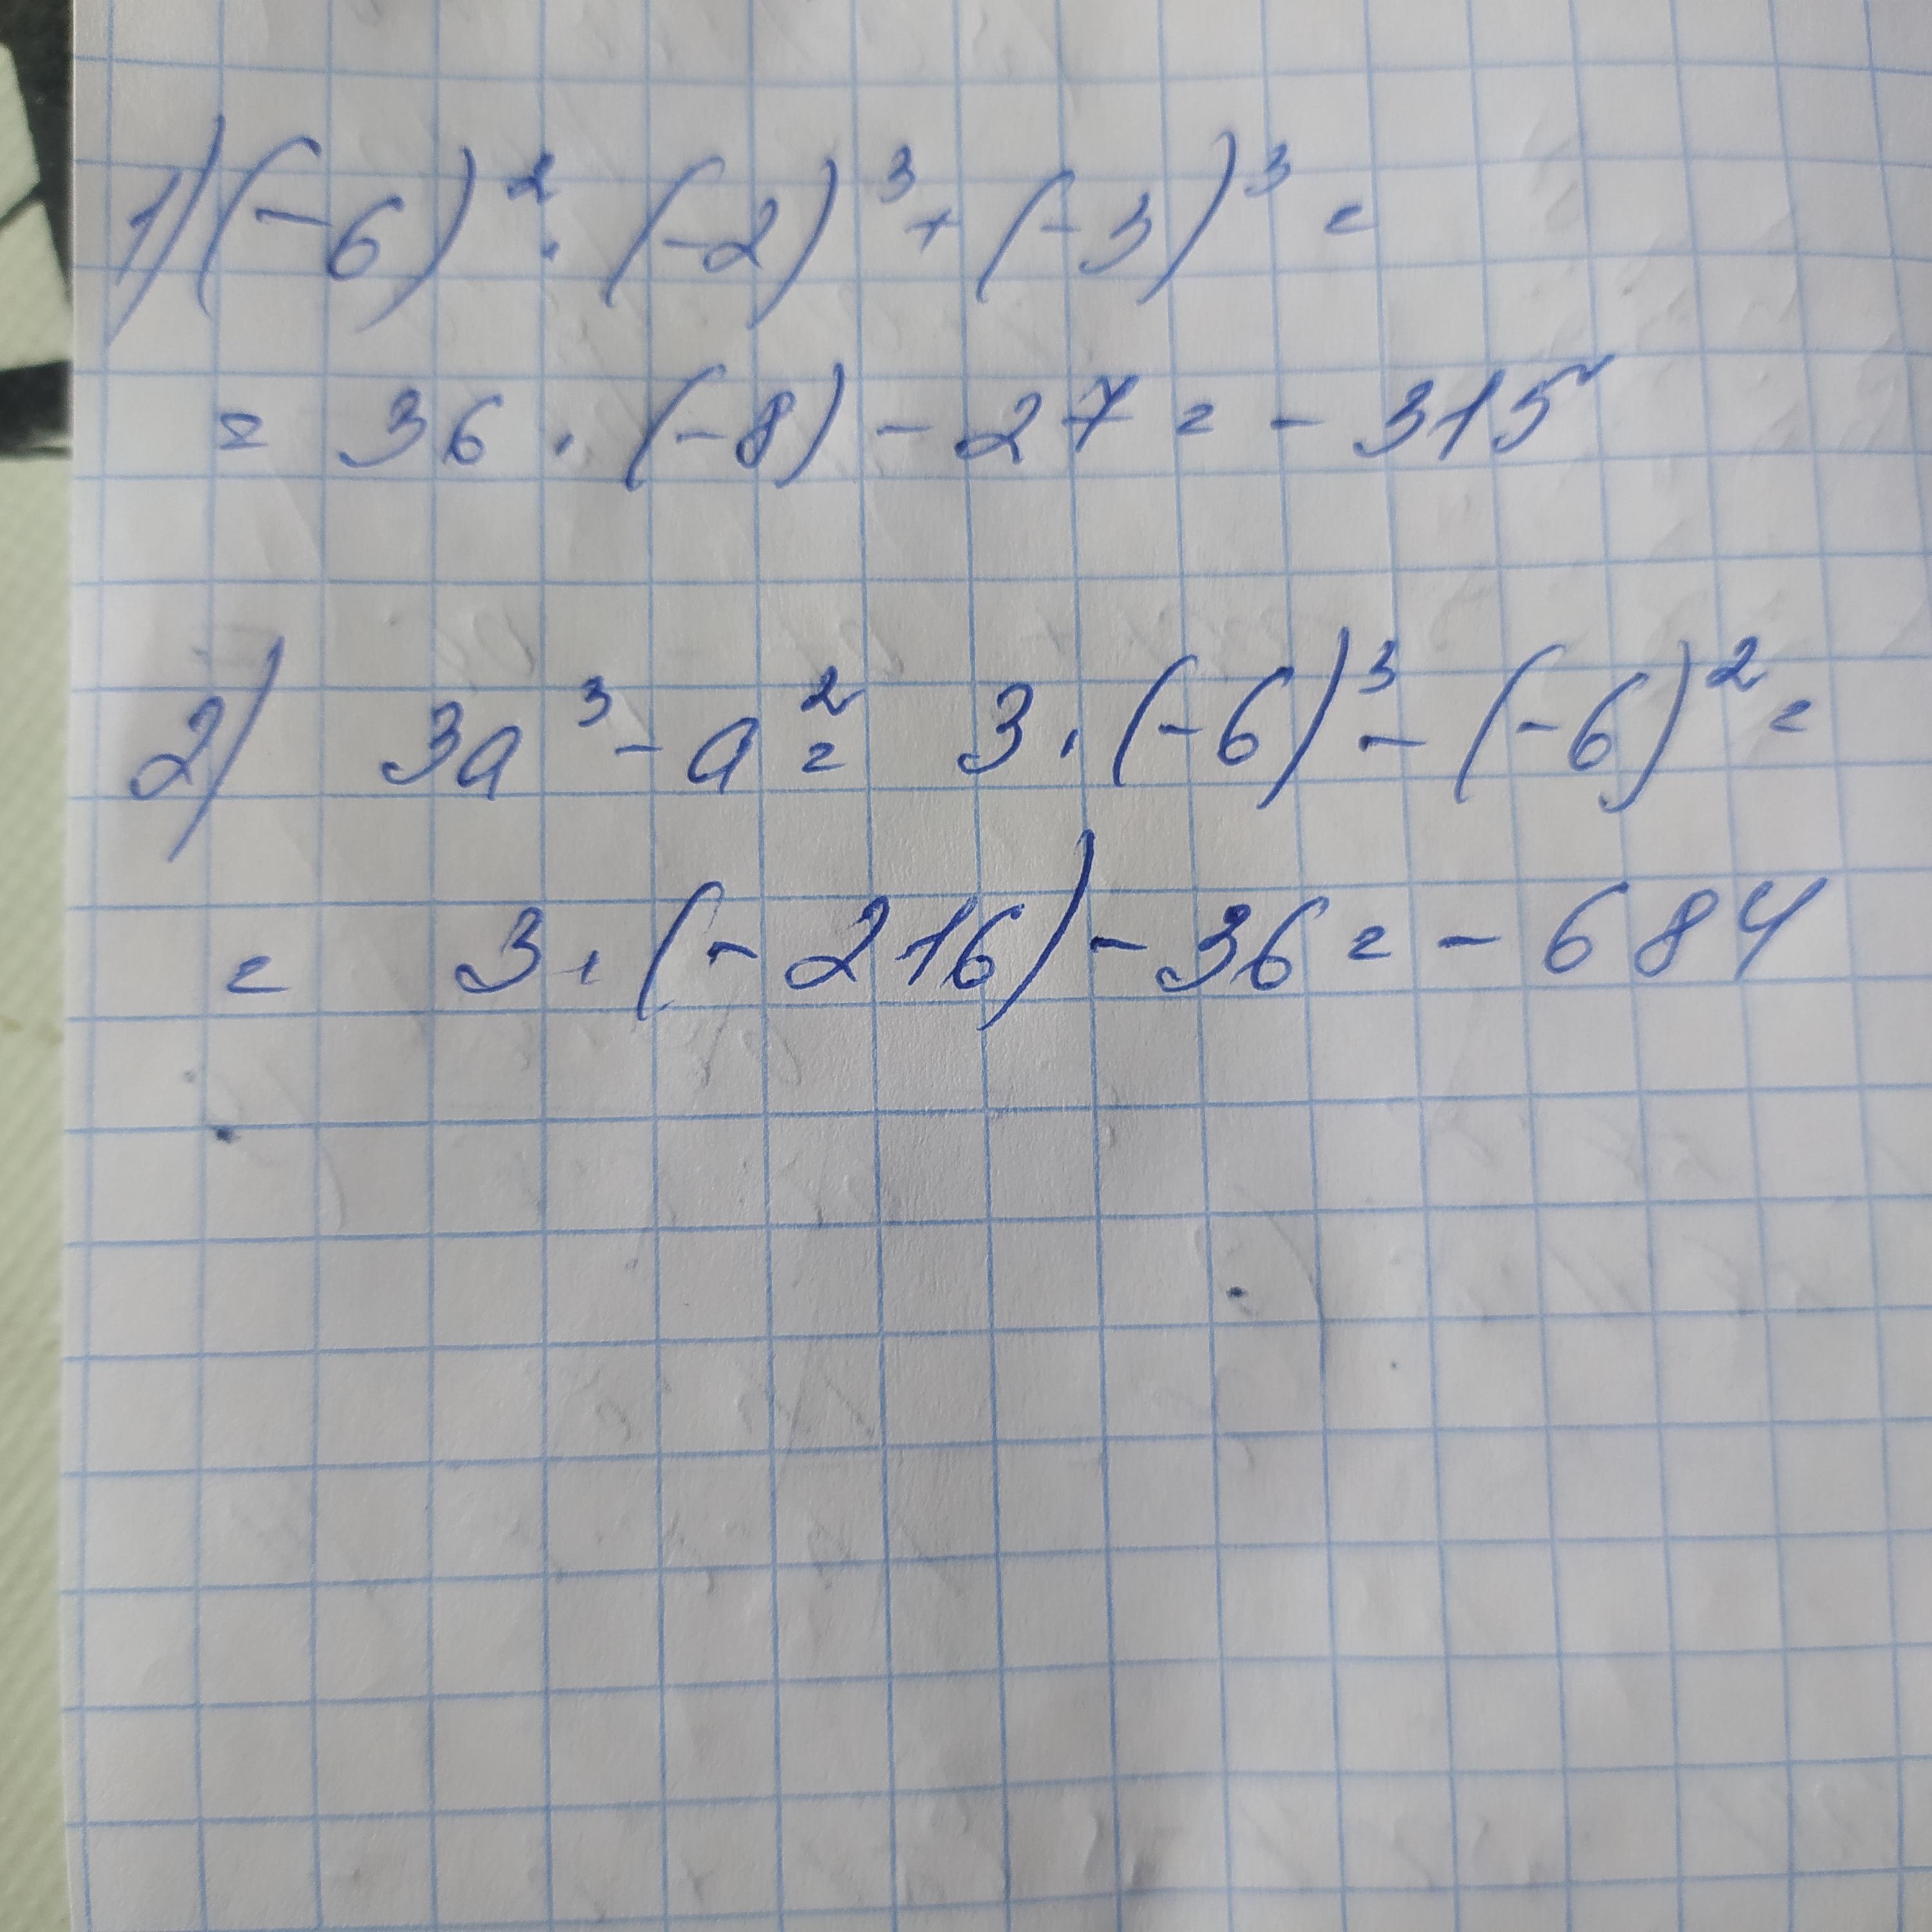 1) (-6)² · (-2)³ + (-3)³ =
= 36 · (-8) - 27 = - 315
2) 3a³ - a² = 3 · (-6)³ - (-6)² =
= 3 · (-216) - 36 = - 684